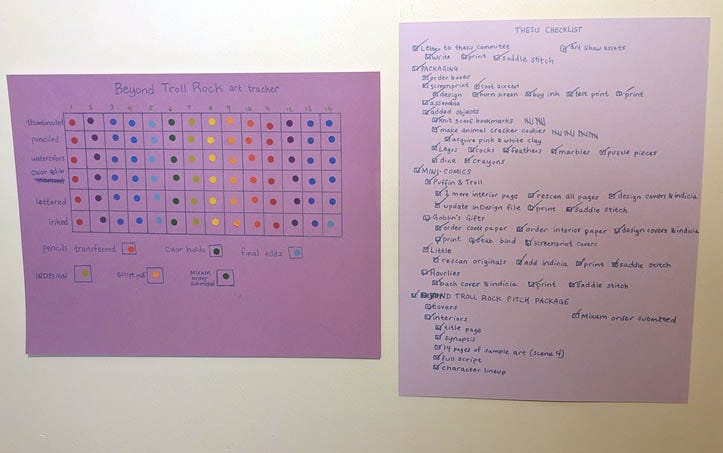 Beyond Troll Rock art tracker
1 2 3 4 5 6 7 8 9 10 11 12 13 14
thumbnailed
penciled
watercolors
color edited
scanned
lettered
inked
pencils transferred
color holds
final edits
INDESIGN
Script pdf
MIXAM order submitted
THESIS CHECKLIST
Letter to thesis committee
write print saddle stitch
art show assets
PACKAGING
order boxes
screenprint
design burn screen buy ink test print print
assemble
added objects
knit scarf bookmarks
make animal cracker cookies
acquire pink & white clay
Legos rocks feathers marbles puzzle pieces
dice crayons
MINI-COMICS
Puffin & Troll
1 more interior page rescan all pages design covers & indicia
update InDesign file print saddle stitch
Goblin's Gift
order cover paper order interior paper design covers & indicia
print stab bind screenprint covers
Little
rescan originals add indicia print saddle stitch
Hourlies
back cover & indicia print saddle stitch
BEYOND TROLL ROCK PITCH PACKAGE
covers
interiors
Mixam order submitted
title page
synopsis
14 pages of sample art (scene 4)
full script
character lineup